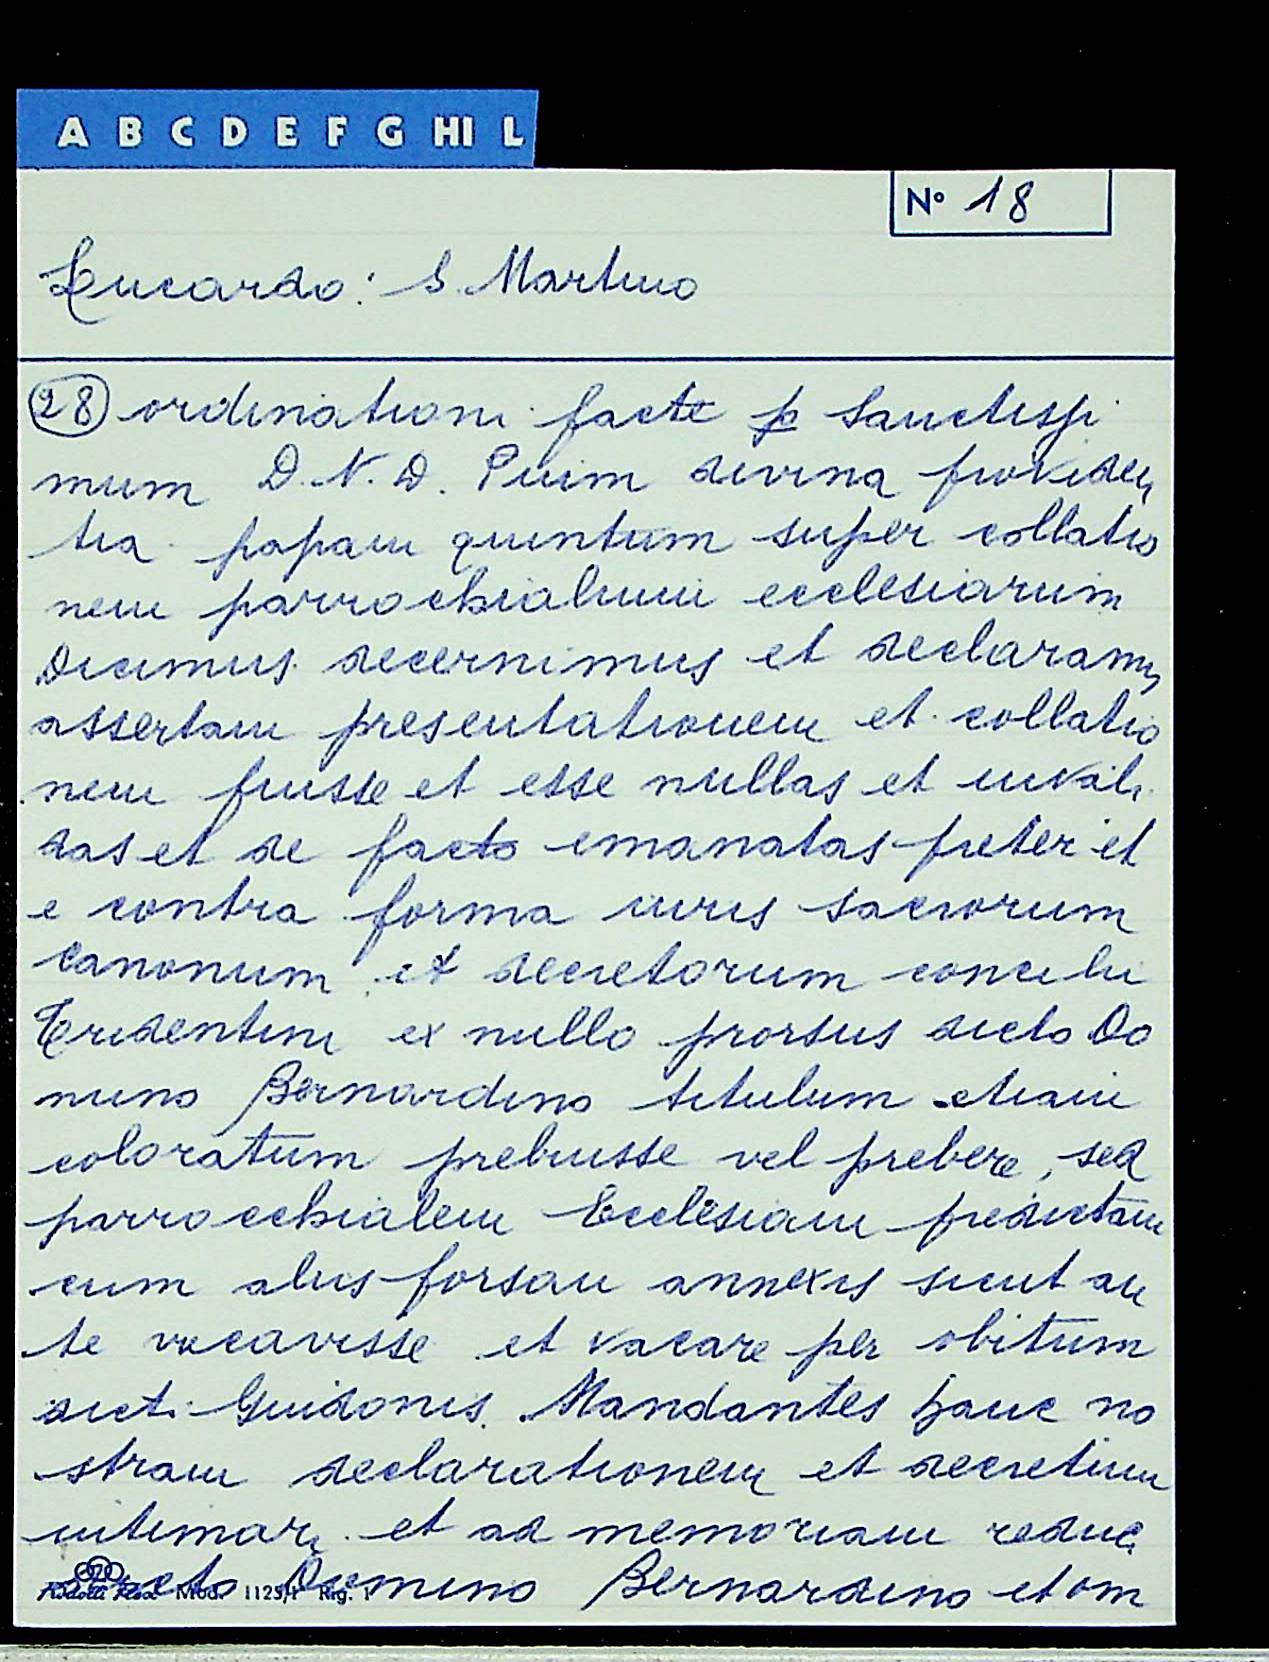 A B C D E F G HI L
N° 18
Lucardo: S. Martino
28 ordinationi facte p Sanctissi
mum D. N. D. Pium divina providen
tia papam quintum super collatio
nem parrochialium ecclesiarum
Dicimus decernimus et declaramus
assertam presentationem et collatio
nem fuisse et esse nullas et invali
das et de facto emanatas preter et
e contra forma iuris sacrorum
canonum et decretorum concilii
Tridentini ex nullo prorsus dicto Do
mino Bernardino titulum etiam
coloratum prebuisse vel prebere, sed
parrocchialem Ecclesiam predictam
cum aliis forsan annexis sicut an
te vacavisse et vacare per obitum
dicti Guidonis. Mandantes hanc no
stram declarationem et decretum
intimari et ad memoriam reduci
dicto Domino Bernardino et om
Mod. 1125/1 Rig. 1